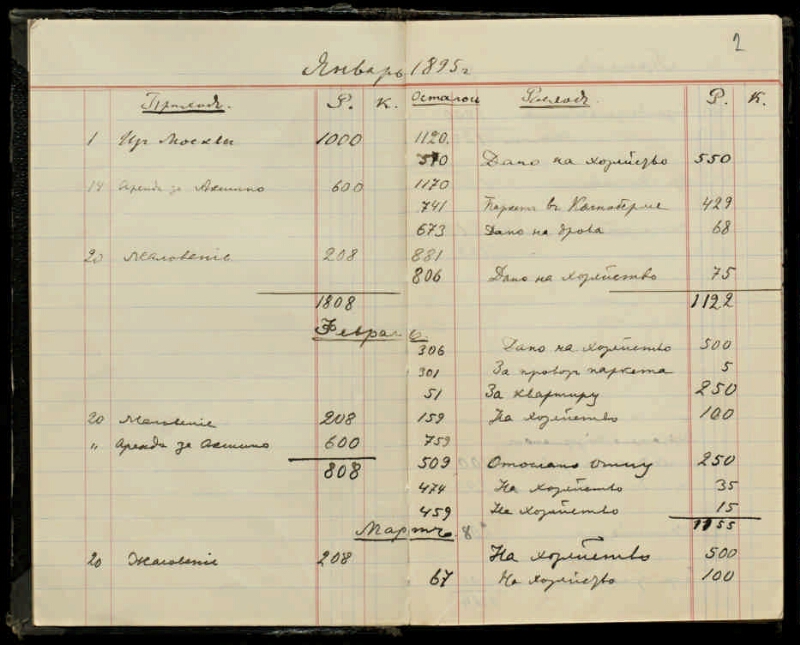 2
Январь 1895 г
Приходъ. Р. К. Осталось Расходъ. Р. К.
1 Изъ Москвы 1000 1120.
570 Дано на хозяйство 550
14 Аренда за Акшино 600 1170
741 Паркетъ въ 429
673 Дано на дрова 68
20 Жалованіе 208 881
806 Дано на хозяйство 75
1808 1122
Февраль
306 Дано на хозяйство 500
301 За провозъ паркета 5
51 За квартиру 250
20 Жалованіе 208 159 На хозяйство 100
„ Аренда за Акшино 600 759
808 509 Отослано отцу 250
474 На хозяйство 35
459 На хозяйство 15
1155
Мартъ 8
20 Жалованіе 208 На хозяйство 500
67 На хозяйство 100